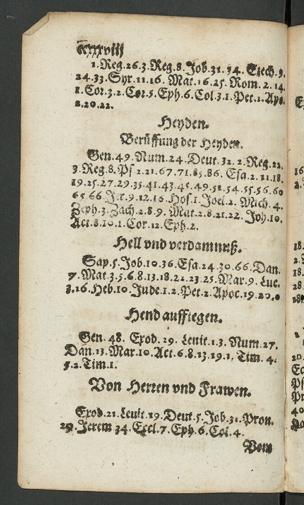 1.Reg.26.3.Reg.8.Job.31.34.Ezech.9.
24.33.Syr.11.16.Mat.16.25.Rom.2.14
1.Cor.3.2.Cor.5.Eph.6.Col.3.1.Pet.1.Apo.
2.20.22.
Heyden.
Berüffung der Heyden.
Gen.49.Num.24.Deut.32.2.Reg.22.
3.Reg.8.Ps 2.21.67.71.85.86.Esa.2.11.18.
19.25.27.29.35.41.43.45.49.51.54.55.56.60
65.66.Jer.9.12.16.Hos.1.Joel.2.Mich.4.
Zeph.3.Zach.2.8.9.Mat.2.8.21.22.Joh.10.
Act.8.10.1.Cor.12.Eph.2.
Hell vnd verdamnuß.
Sap.5.Job.10.36.Esa.24.30.66.Dan.
7.Mat.3.5.6.8.13.18.22.23.25.Mar.9.Luc.
3.16.Heb.10.Jude.1.2.Pet.2.Apoc.19.20.
Hend aufflegen.
Gen.48.Exod.29.Leuit.1.3.Num.27.
Dan.13.Mar.10.Act.6.8.13.19.1.Tim.4.
5.2.Tim.1.
Von Herren vnd Frawen.
Exod.21.Leuit.19.Deut.5.Job.31.Prou.
29.Jerem 34.Eccl.7.Eph.6.Col.4.
Vom